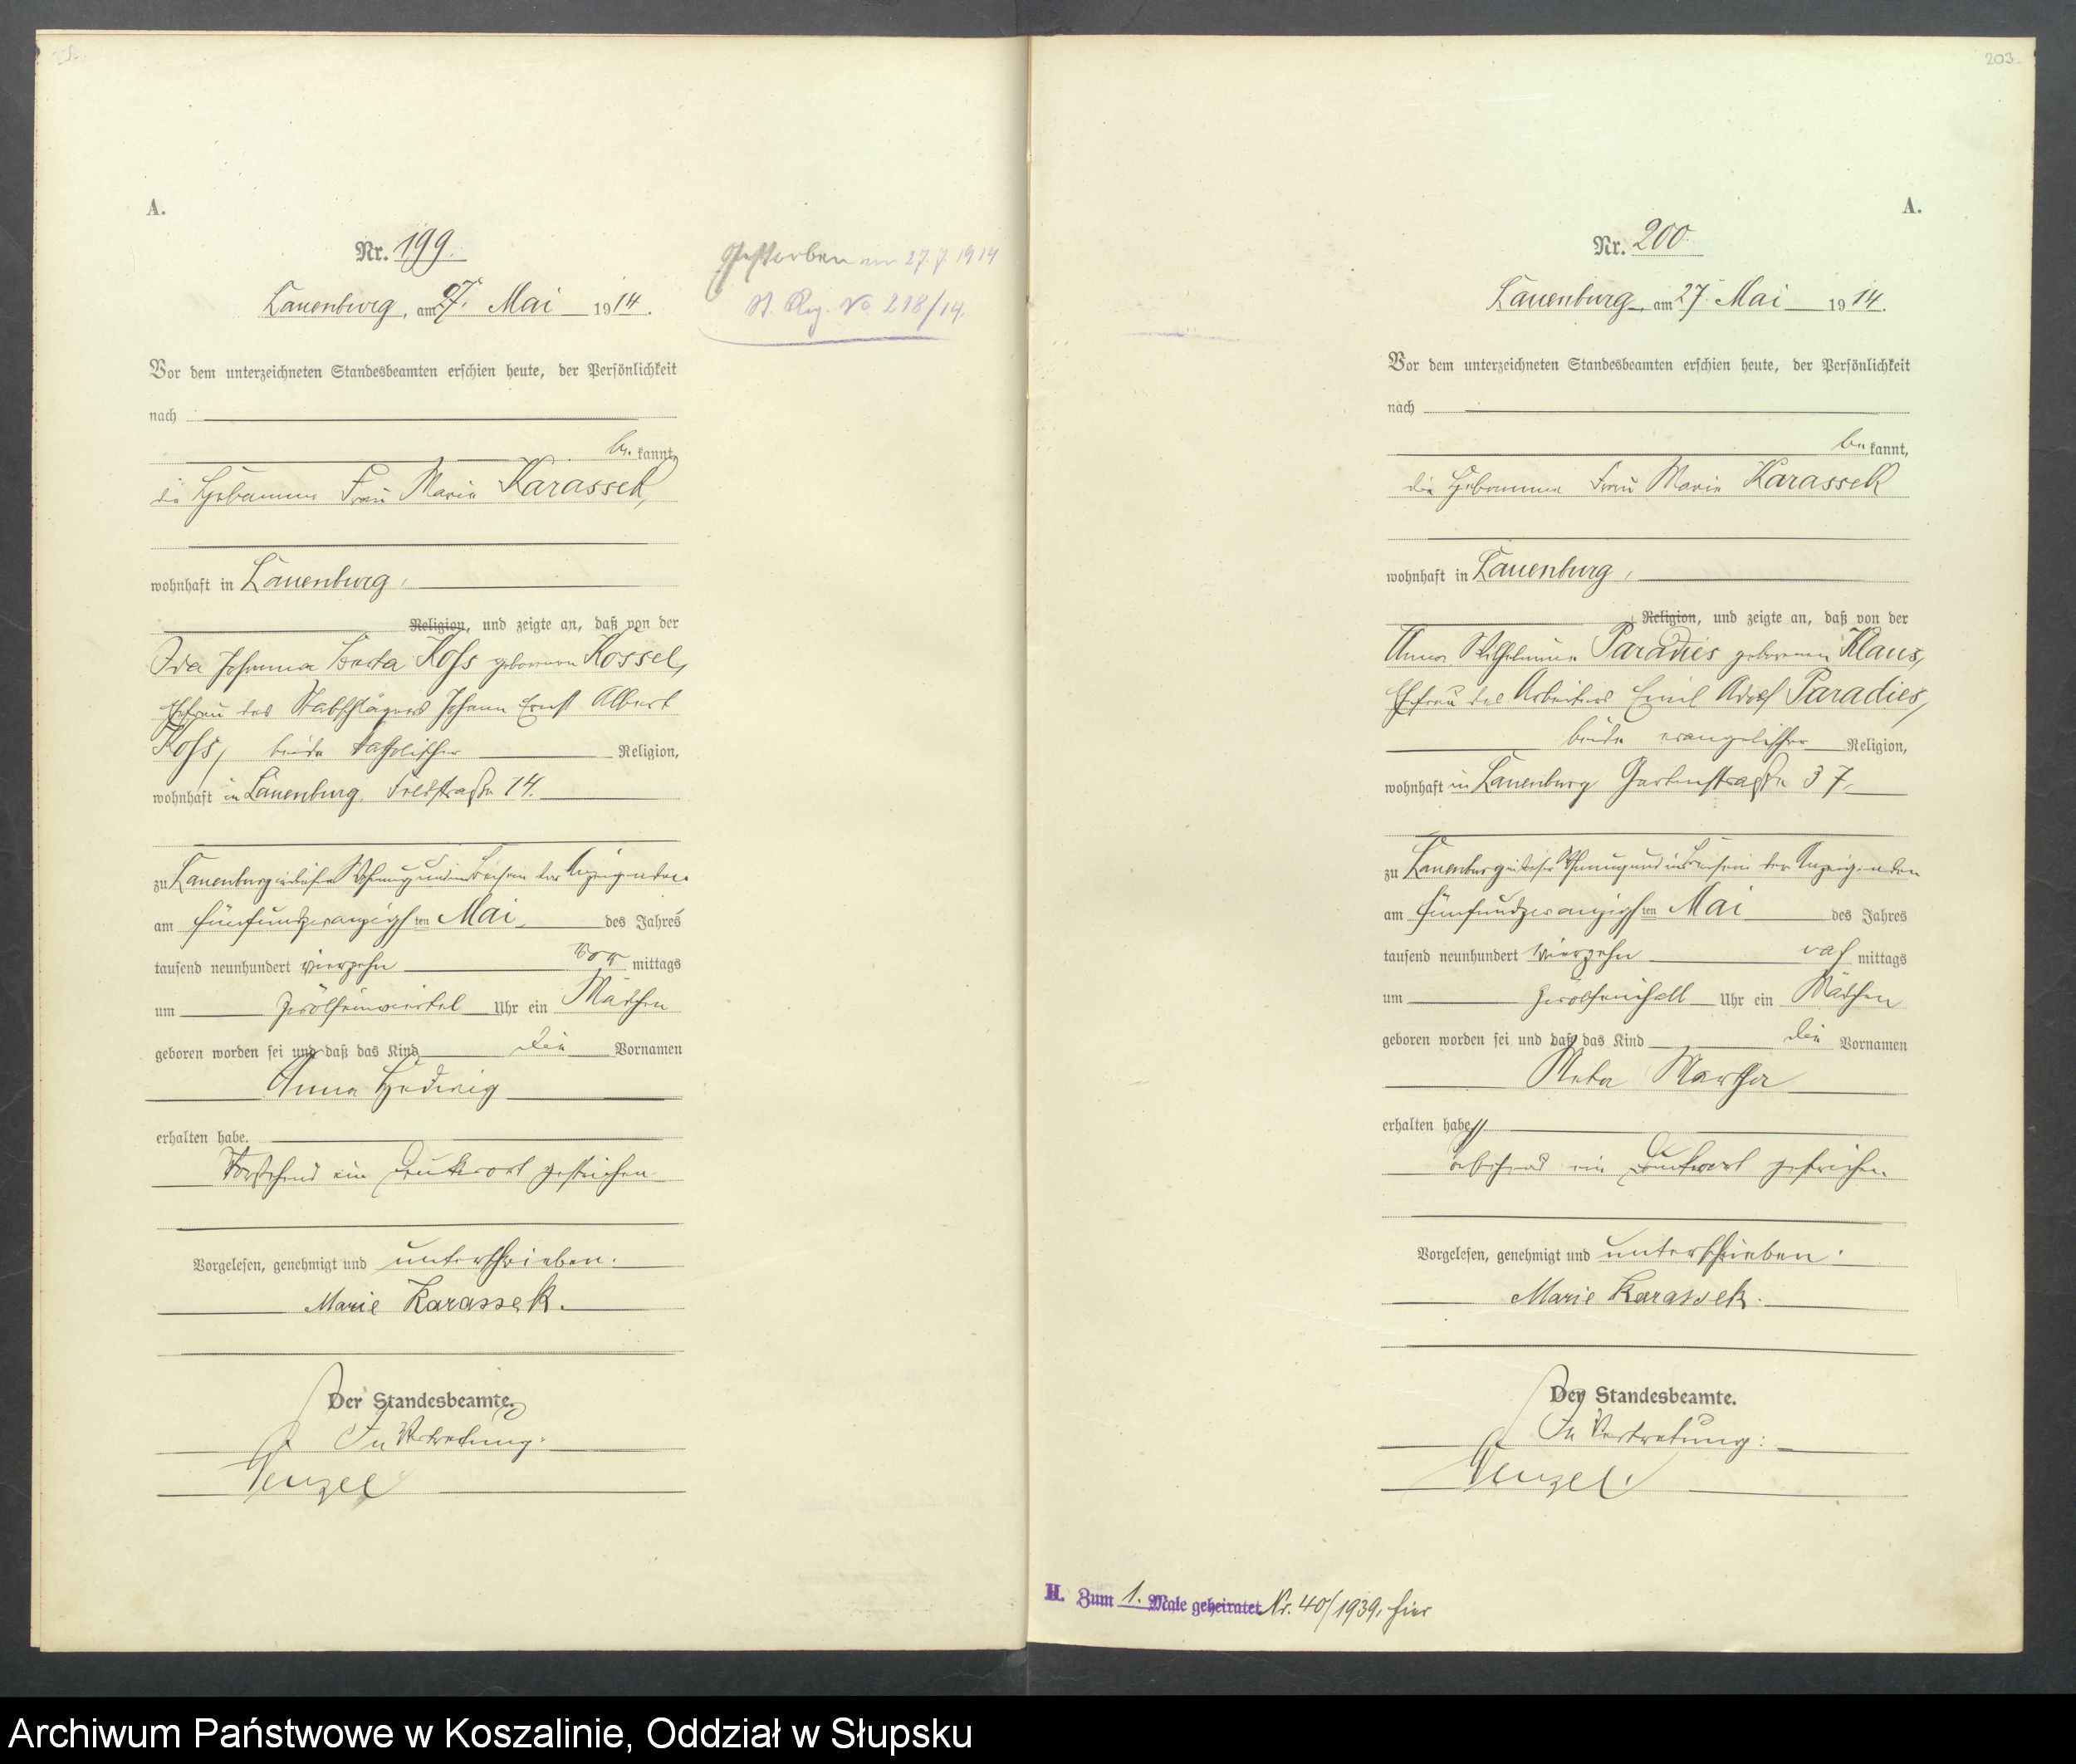 A.
Nr. 199.
Lauenburg, am 27. Mai 1914.
Gestorben am 27.7.1914
St. Reg. No 218/14.
Vor dem unterzeichneten Standesbeamten erschien heute, der Persönlichkeit
nach
be kannt,
die Hebamme Frau Marie Karassek,
wohnhaft in Lauenburg,
Religion, und zeigte an, daß von der
Ida Johanna Berta Koss geborenen Kossel,
Ehefrau des Johann Ernst Albert
Koss, beide katholischer Religion,
wohnhaft in Lauenburg Feldstraße 14.
zu Lauenburg in dieser Wohnung und im Beisein der Anzeigenden
am fünfundzwanzigsten Mai, des Jahres
tausend neunhundert vierzehn vor mittags
um zwölfeinviertel Uhr ein Mädchen
geboren worden sei und daß das Kind die Vornamen
Anna Hedwig
erhalten habe.
Vorstehend ein Druckwort gestrichen.
Vorgelesen, genehmigt und unterschrieben.
Marie Karassek.
Der Standesbeamte.
In Vertretung:
Wenzel
203.
A.
Nr. 200.
Lauenburg, am 27. Mai 1914.
Vor dem unterzeichneten Standesbeamten erschien heute, der Persönlichkeit
nach
be kannt,
die Hebamme Frau Marie Karassek
wohnhaft in Lauenburg,
Religion, und zeigte an, daß von der
Anna Wilhelmine Paradies geborenen Klaus,
Ehefrau des Arbeiters Emil Adolf Paradies,
beide evangelischer Religion,
wohnhaft in Lauenburg Gartenstraße 37,
zu Lauenburg in dieser Wohnung und im Beisein der Anzeigenden
am fünfundzwanzigsten Mai des Jahres
tausend neunhundert vierzehn nach mittags
um zwölfeinhalb Uhr ein Mädchen
geboren worden sei und daß das Kind die Vornamen
Meta Martha
erhalten habe
Vorstehend ein Druckwort gestrichen
Vorgelesen, genehmigt und unterschrieben.
Marie Karassek.
Der Standesbeamte.
In Vertretung:
Wenzel.
H. Zum 1. Male geheiratet Nr. 40/1939, hier
Archiwum Państwowe w Koszalinie, Oddział w Słupsku